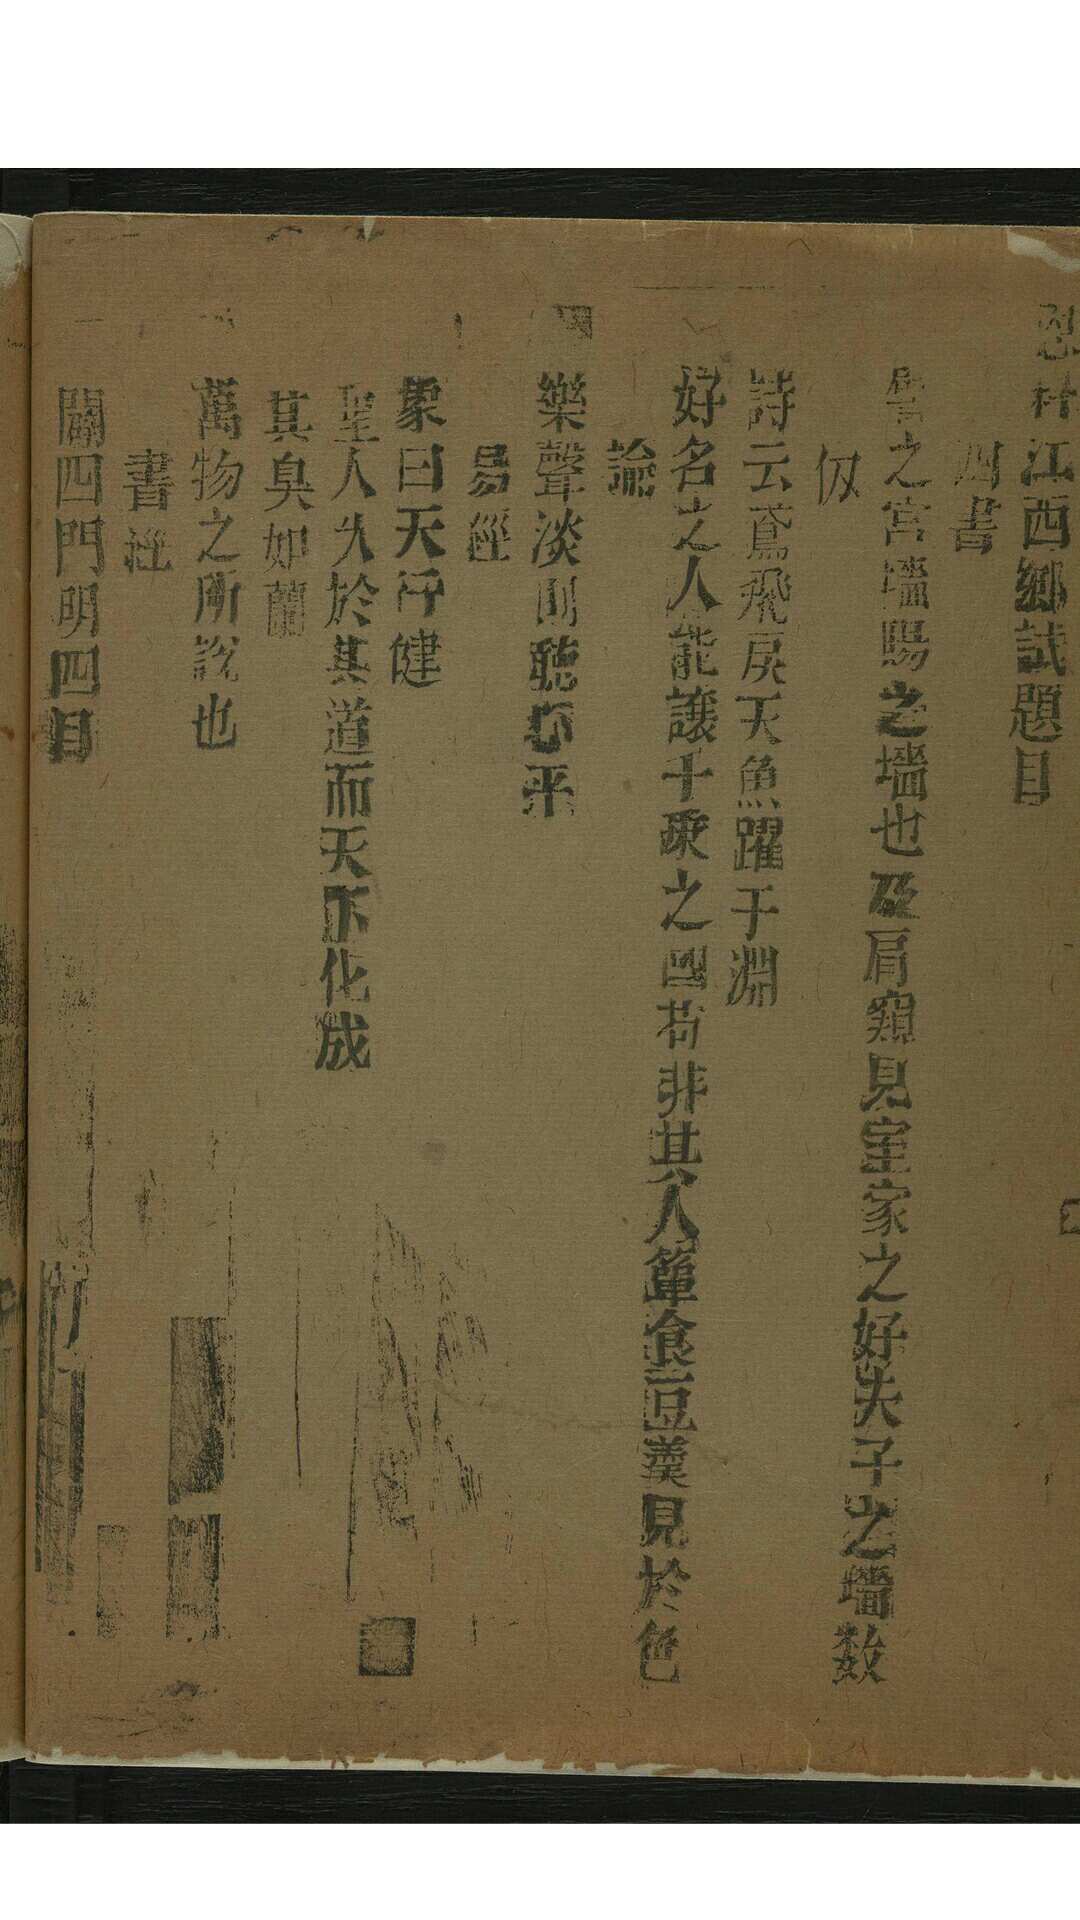 恩科江西鄉試題目
四書
譬之宮墻賜之墻也及肩窺見室家之好夫子之墻數
仭
詩云鳶飛戾天魚躍于淵
好名之人能讓千乗之國苟非其人簞食豆羹見於色
論
樂聲淡則聽心平
易經
象曰天行健
聖人久於其道而天下化成
其臭如蘭
萬物之所說也
書經
闢四門明四目